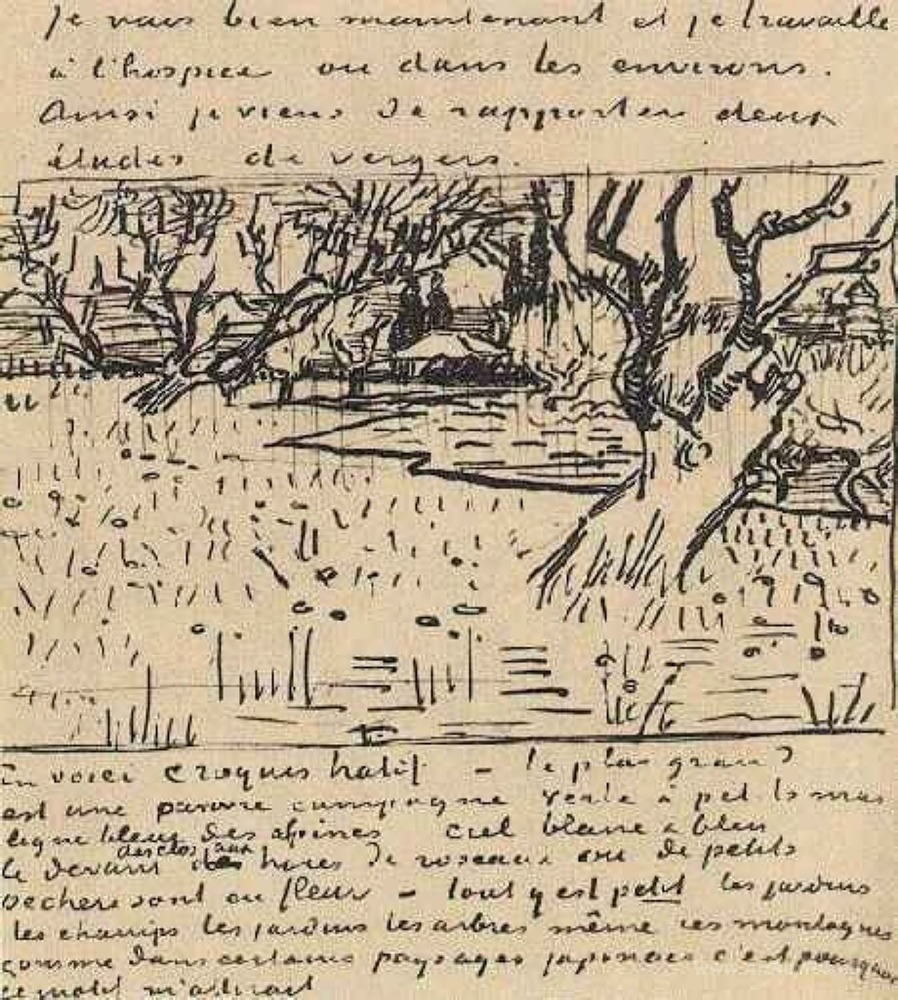 je vais bien maintenant et je travaille
à l'hospice ou dans les environs.
Ainsi je viens de rapporter deux
études de vergers.
En voici croquis hatif - le plus grand
est une pauvre campagne verte à petits mas
ligne bleue des alpines ciel blanc & bleu
le devant des clos aux haies de roseaux où de petits
pechers sont en fleur - tout y est petit les jardins
les champs les jardins les arbres même ces montagnes
comme dans certains paysages japonais c'est pourquoi
ce motif m'attirait